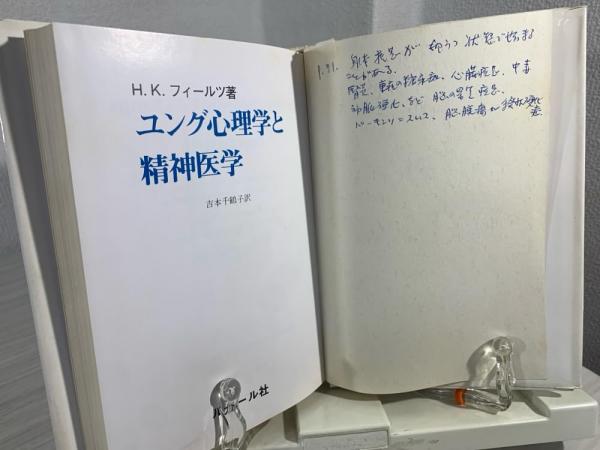 H. K. フィールツ著
ユング心理学と
精神医学
吉本千鶴子訳
ルガール社
P.91. 身体疾患が抑うつ状態で始まる
ことがある。
腎症、重症の糖尿病、心臓疾患、中毒
動脈硬化、など 脳の器質疾患、
パーキンソニズムス、脳腫瘍